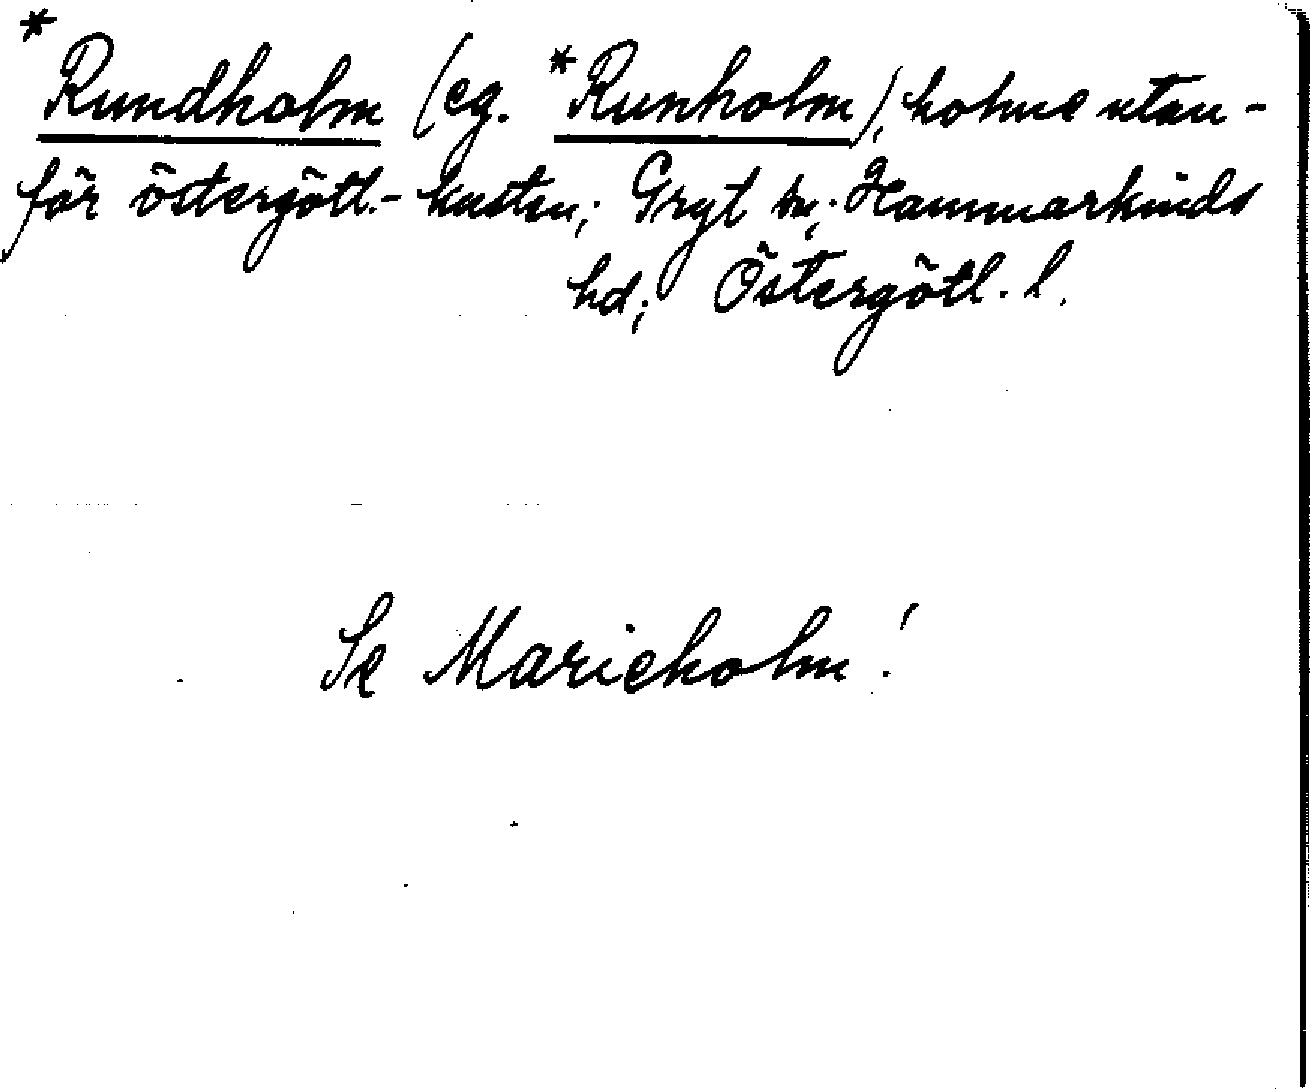 *Rundholm (eg. *Runholm), holme utan-
för östergötl.-kusten; Gryt sn; Hammarkinds
hd; Östergötl. l.
Se Marieholm!